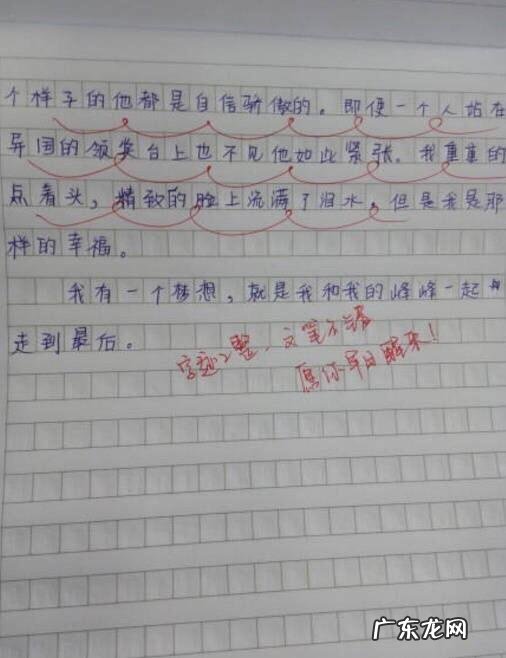 个样子的他都是自信骄傲的。即便一个人站在
异国的领奖台上也不见他如此紧张。我重重的
点着头，精致的脸上流满了泪水，但是我是那
样的幸福。
我有一个梦想，就是我和我的峰峰一起
走到最后。
字迹工整，文笔不错
愿你早日醒来！
广东龙网